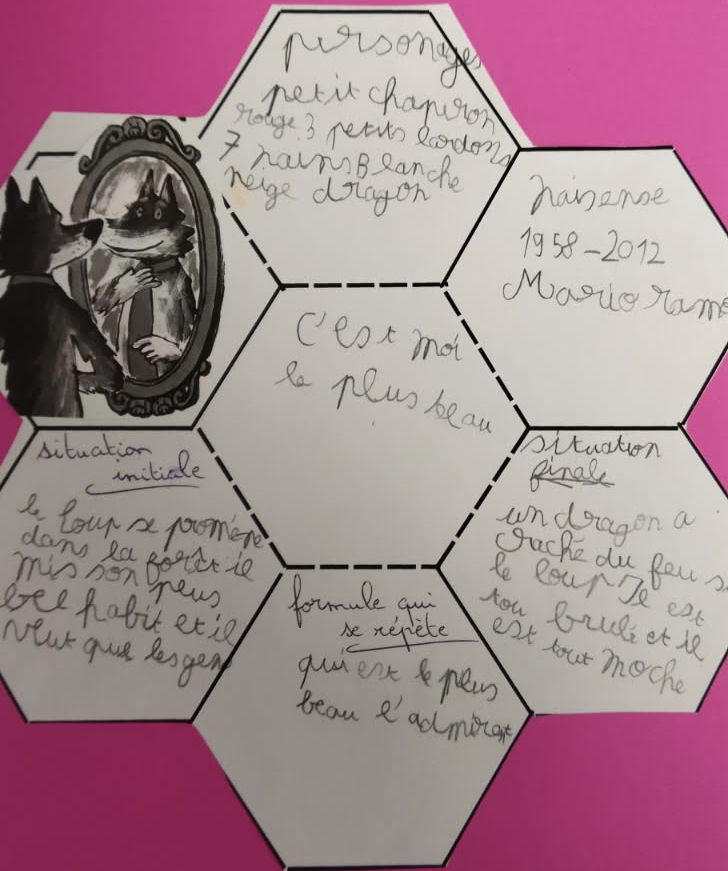 personages
petit chaperon
rouge 3 petits lardons
7 nains Blanche
neige dragon
naisense
1958-2012
Mario ramo
C'est moi
le plus beau
situation
initiale
le loup se promène
dans la forêt il
mis son plus
bel habit et il
veut que les gen
formule qui
se répète
qui est le plus
beau l'admirent
situation
finale
un dragon a
craché du feu s
le loup Il est
tou brulé et il
est tout moche